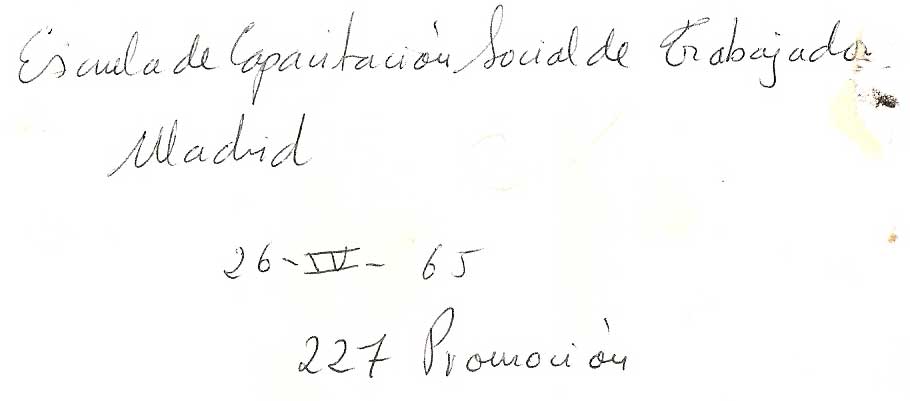 Escuela de Capacitación Social de Trabajador
Madrid
26-IV-65
227 Promoción